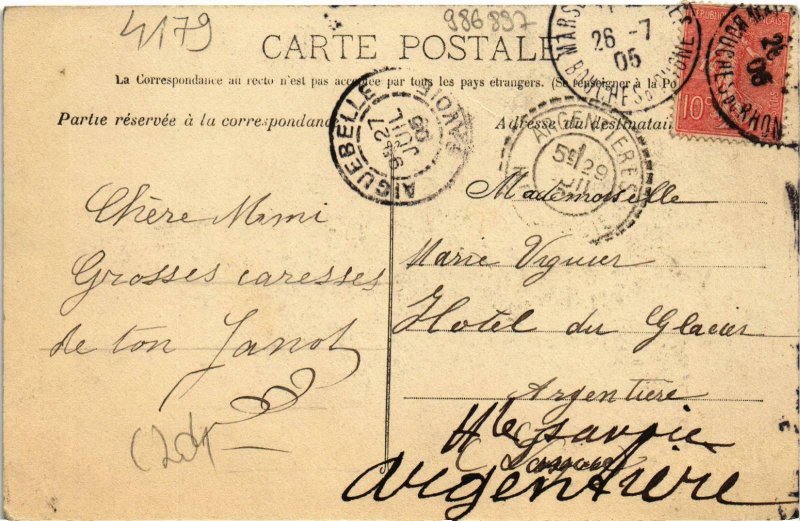 4179
986897
CARTE POSTALE
La Correspondance au recto n'est pas acceptée par tous les pays etrangers. (Se renseigner à la Po
Partie réservée à la correspondance
Adresse du destinataire
MARSEILLE
26 -7
05
BOUCHES DU RHONE
26
05
BOUCHES DU RHONE
RÉPUBLIQUE FRANÇAISE
10c
AIGUEBELLE
9E 27
JUIL
05
SAVOIE
ARGENTIERES
5E 29
JUIL
Chère Mimi
Grosses caresses
de ton Janot
Mademoiselle
Marie Viguier
Hotel du Glacier
Argentière
Hte Savoie
Argentière